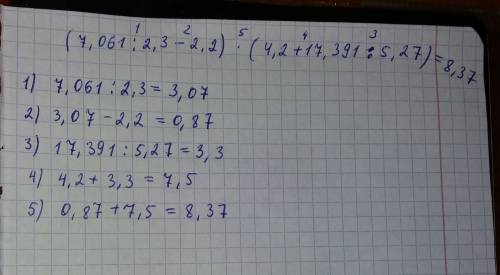 1 2 5 4 3
(7,061 : 2,3 - 2,2) · (4,2 + 17,391 : 5,27) = 8,37
1) 7,061 : 2,3 = 3,07
2) 3,07 - 2,2 = 0,87
3) 17,391 : 5,27 = 3,3
4) 4,2 + 3,3 = 7,5
5) 0,87 + 7,5 = 8,37